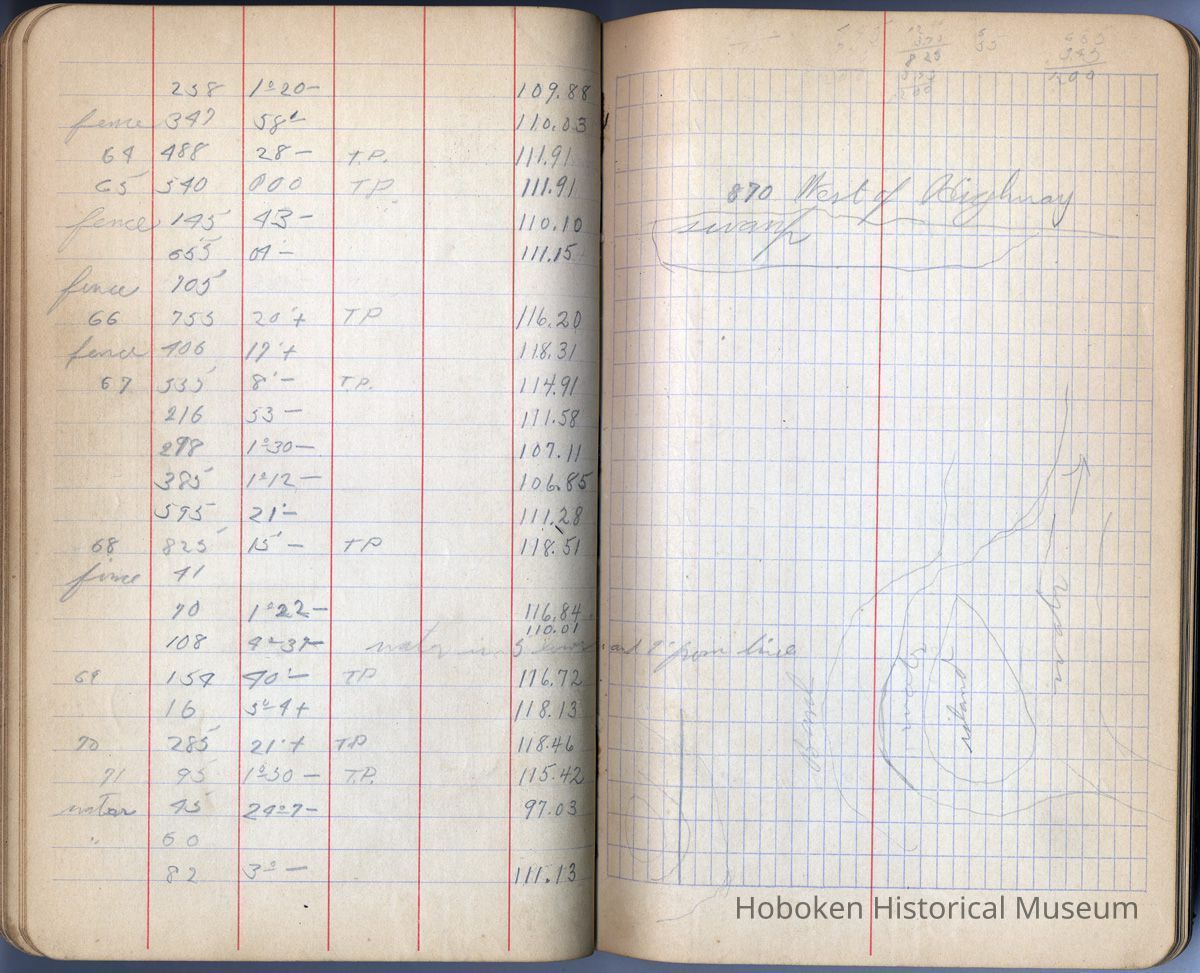 258 1°20- 109.88
fence 347 58'- 110.03
64 488 28- T.P. 111.91
65 540 000 TP 111.91
fence 145 43- 110.10
655 01'- 111.15
fence 705
66 755 20'+ TP 116.20
fence 406 17'+ 118.31
67 535 8'- T.P. 114.91
216 53- 111.58
298 1°30- 107.11
385 1°12- 106.85
595 21'- 111.28
68 825 15'- TP 118.51
fince 41
70 1°22- 116.84
110.01
108 4°37- water in and from line
69 154 40'- TP 116.72
16 5°4+ 118.13
70 285 21'+ TP 118.46
71 95 1°30- T.P. 115.42
water 45 24°7- 97.03
" 60
82 3°- 111.13
825
870 West of Highway
swamp
water
Bank
water
island
Hoboken Historical Museum